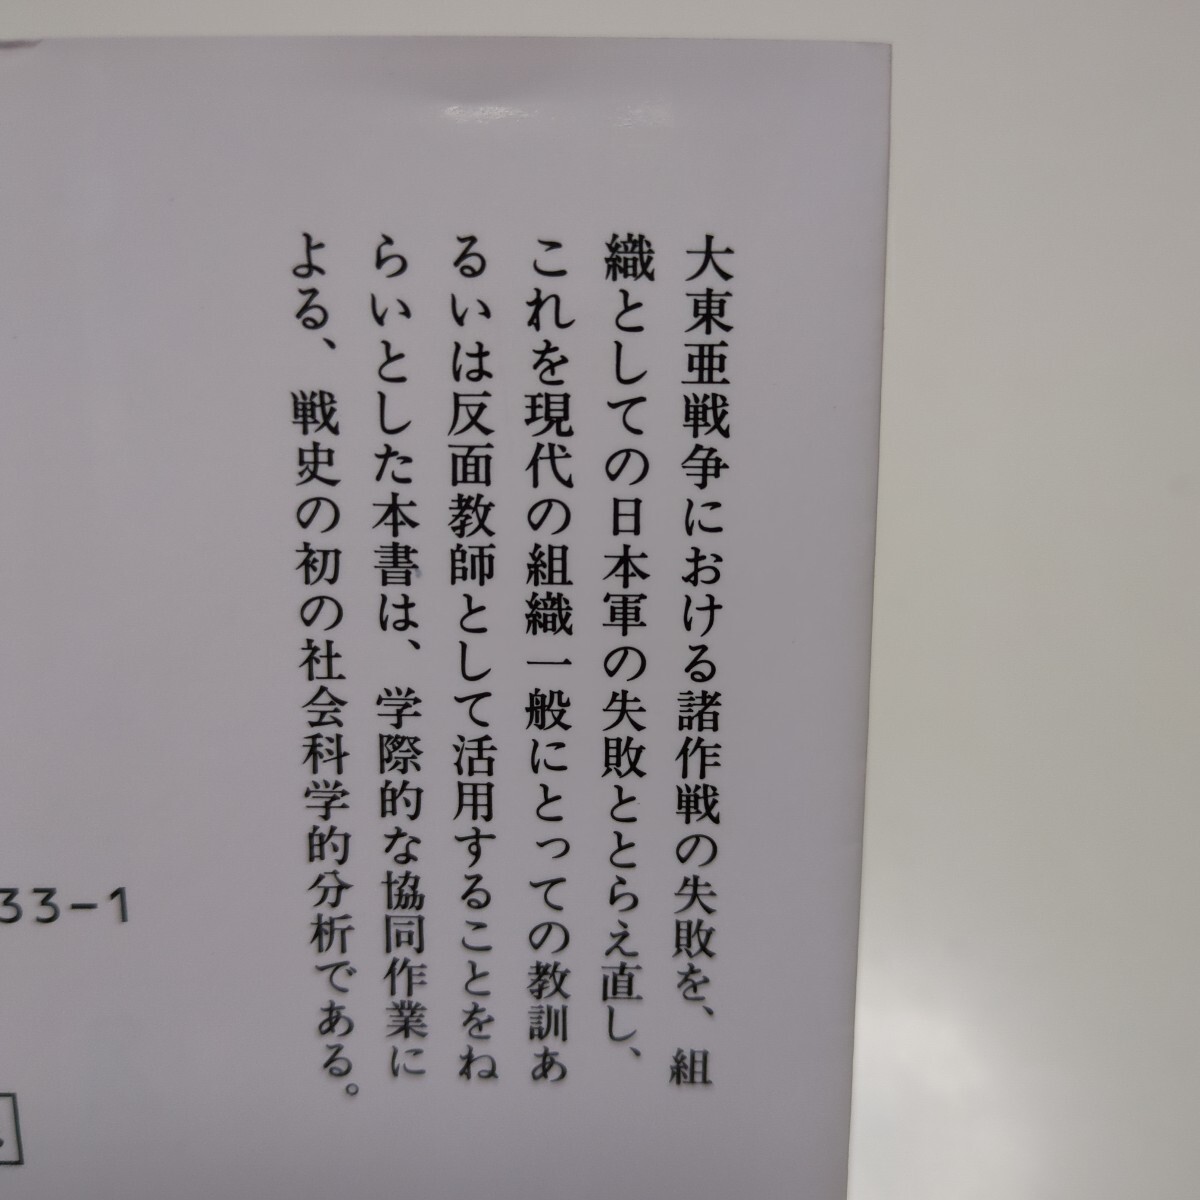 大東亜戦争における諸作戦の失敗を、組
織としての日本軍の失敗ととらえ直し、
これを現代の組織一般にとっての教訓あ
るいは反面教師として活用することをね
らいとした本書は、学際的な協同作業に
よる、戦史の初の社会科学的分析である。
33-1